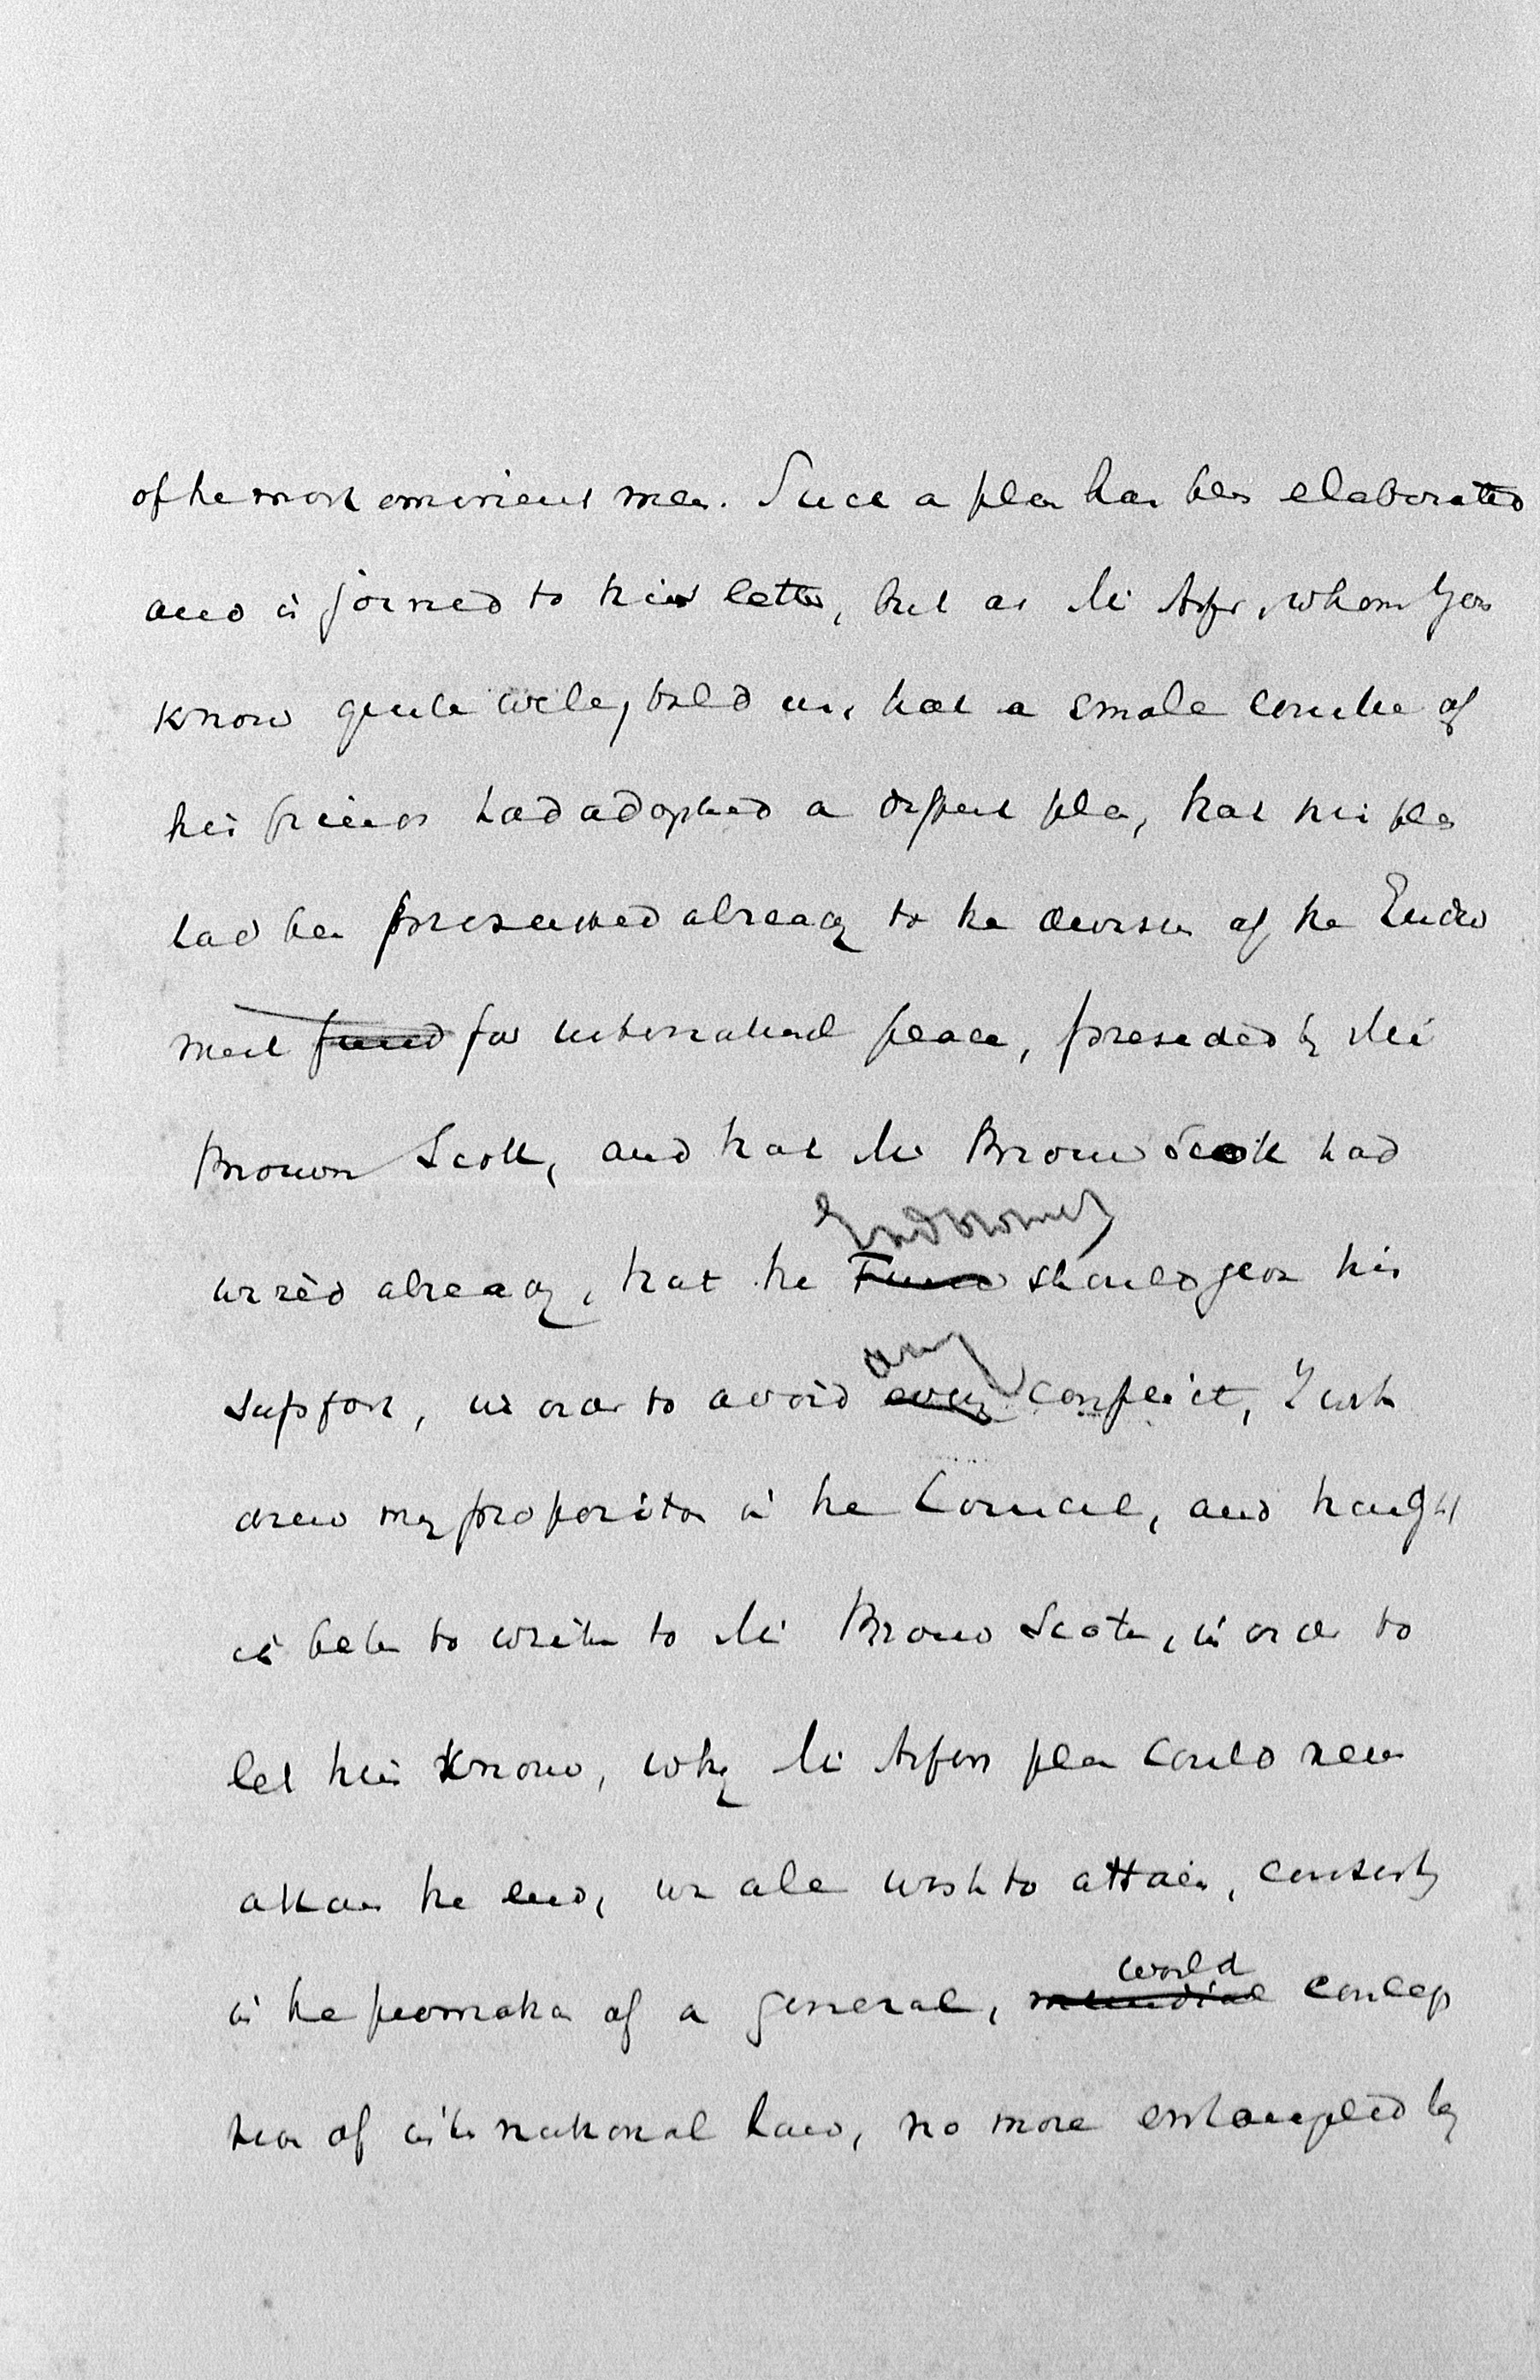 of the most eminent men. Such a plan has been elaborated
and is joined to this letter, but as Mr Asser, whom you
know quite well, told us, that a small comitee of
his friends had adopted a different plan, that this plan
had been presented already to the division of the Endow
ment fund for international peace, presided by Mr
Brown Scott, and that Mr Brown Scott had
wired already, that the Fund Endowment should give his
support, in order to avoid every any conflict, I with
drew my proposition in the Council, and thought
it better to write to Mr Brown Scott, in order to
let him know, why Mr Assers plan could never
attain the end, we all wish to attain, consisting
in the promotion of a general, mundial world concep
tion of international law, no more entangled by